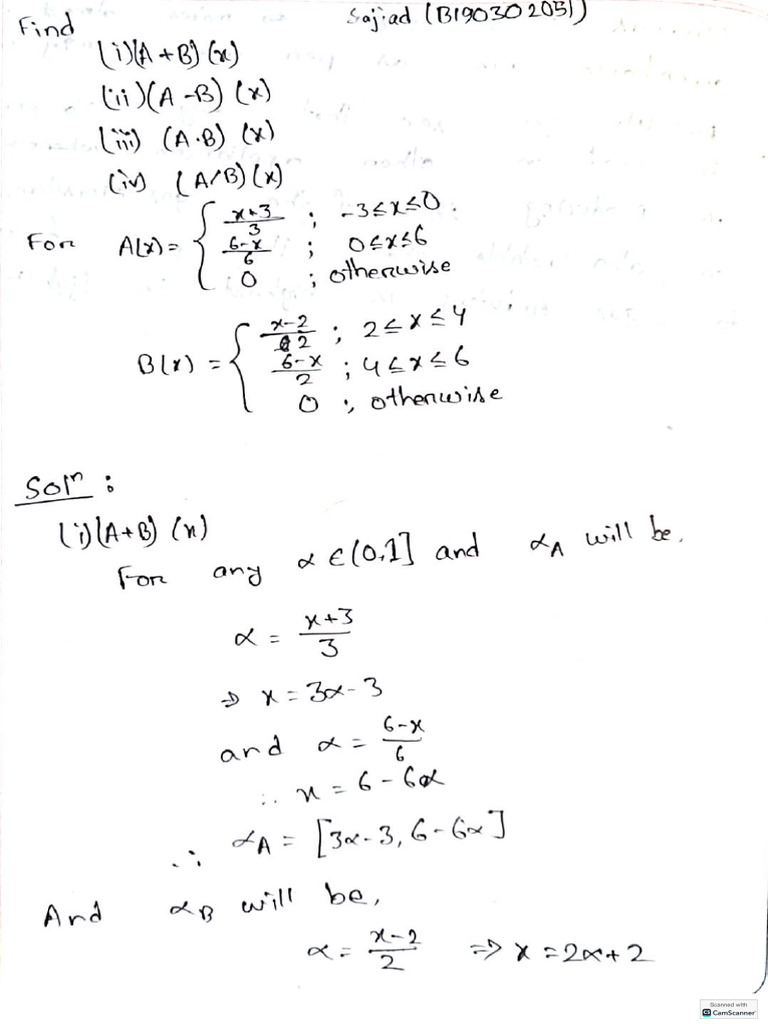 Find
Sajjad (B190302051)
(i)(A+B)(x)
(ii)(A-B)(x)
(iii) (A·B)(x)
(iv) (A/B)(x)
For A(x) = { x+3/3 ; -3≤x≤0.
6-x/6 ; 0≤x≤6
0 ; otherwise
B(x) = { x-2/2 ; 2≤x≤4
6-x/2 ; 4≤x≤6
0 ; otherwise
Solⁿ :
(i)(A+B)(x)
For any α ∈(0,1] and αA will be,
α = x+3/3
⇒ x = 3α-3
and α = 6-x/6
∴ x = 6-6α
∴ αA = [3α-3, 6-6α]
And αB will be,
α = x-2/2 ⇒ x = 2α+2
Scanned with
CS CamScanner